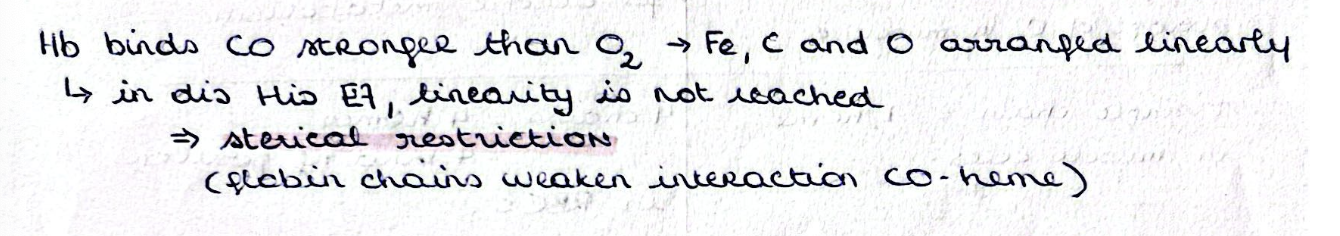 Hb binds CO stronger than O₂ → Fe, C and O arranged linearly
↳ in dis His E7, linearity is not reached
⇒ sterical restriction
(globin chains weaken interaction CO-heme)